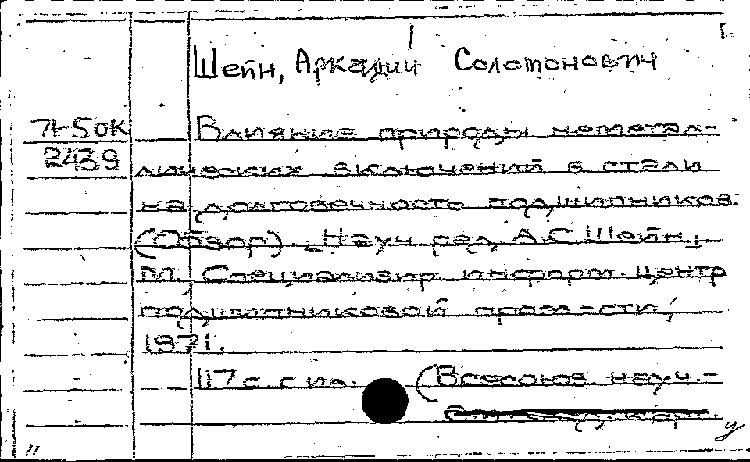 Шейн, Аркадий Соломонович
71-5ок Влияние природы неметал-
2439 лических включений в стали
на долговечность подшипников.
(Обзор). Науч. ред. А.С. Шейн,
М. Специализир. информ. центр
подшипниковой пром-сти,
1971.
117 с. с ил. (Всесоюз науч.-